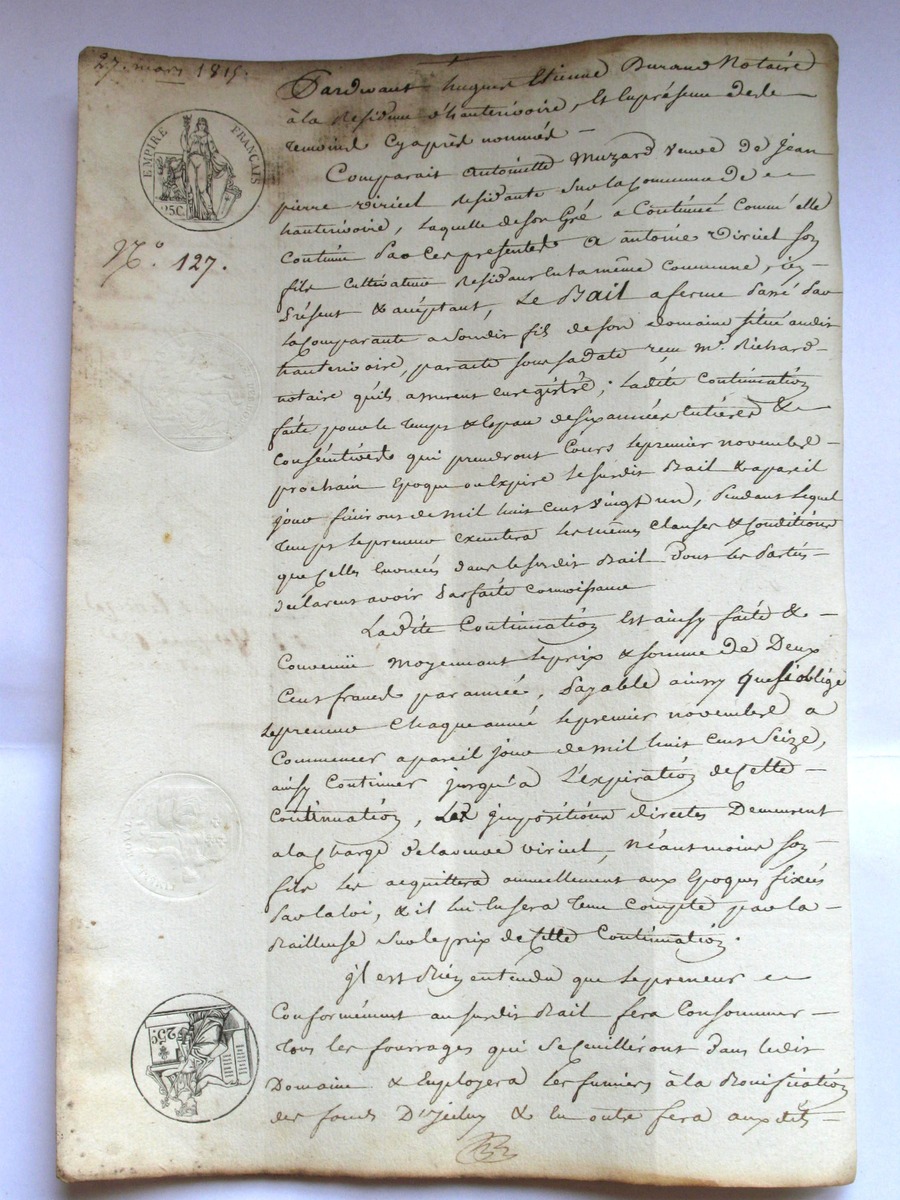 27. mars 1815.
EMPIRE FRANÇAIS
25C.
N.o 127.
Pardevant hugues Etienne Durand Notaire
à la Residence d'hauterivoire, Et En présence de de
temoins Cy après nommés —
Comparait Antoinette Muzard veuve de Jean
pierre Viricel residante sur la Commune de
hauterivoire, laquelle de son Gré a Continué Comm'elle
Continue par Ces presentes a antoine Viricel son
fils Cultivateur Residant en la même Commune, icy
présent & acceptant, Le Bail a ferme passé par
la Comparante a sondit fils de son domaine situé audit
hauterivoire, par acte sous sa date reçu Me. Richard
notaire qu'ils assurent enregistré; ladite Continuation
faite pour le temps & espace de six années Entières &
Consécutives qui prendront Cours le premier novembre
prochain Epoque ou Expire le susdit Bail & a pareil
jour finiront de mil huit Cent vingt un, pendant lequel
temps le preneur executera les mêmes Clauses & Conditions
que Celles Enoncées dans le susdit Bail dont les parties
declarent avoir parfaite connoissance
Ladite Continuation Est ainsy faite &
Convenüe moyennant le prix & somme de Deux
Cent francs par année, payable ainsy que s'i oblige
le preneur Chaque année le premier novembre a
Commencer a pareil jour de mil huit Cent Seize,
ainsy Continuer jusqu'a L'expiration de Cette
Continuation, Les jmpositions directes Demeurent
a la Charge de la veuve viricel, Néant moins son
fils les acquittera annuellement aux Epoques fixées
par la loi, & il lui En sera tenu Compte par la
Bailleuse sur le prix de Cette Continuation.
jl est Bien entendu que le preneur
Conformément au susdit Bail fera Consommer
tous les fourrages qui se Ceuilleront dans ledit
Domaine & Employera les fumiers à la Bonification
des fonds D'jceluy & en outre fera auxdits
25C.